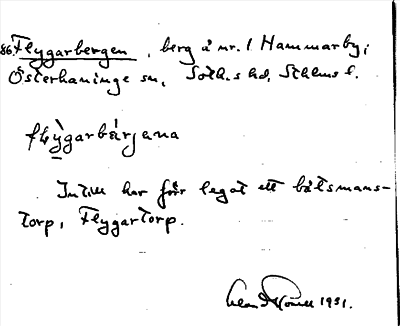 86. Flygarbergen, berg å nr. 1 Hammarby i
Österhaninge sn, Soth.s hd, Sthlms l.
flỳgarbärjana
Intill har förr legat ett båtsmans-
torp, Flygartorp.
1931.